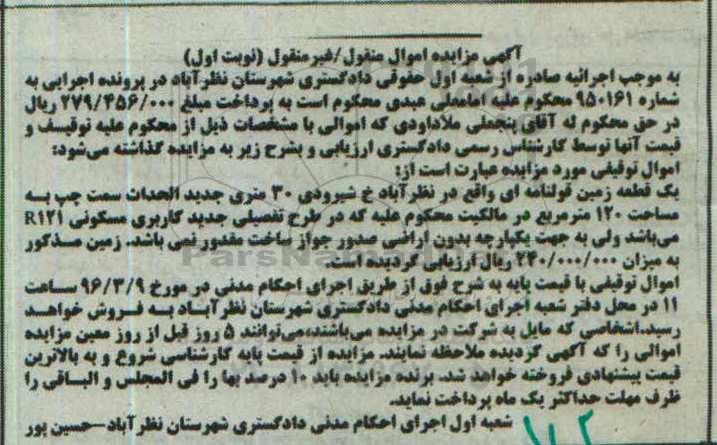 آگهی مزایده اموال منقول/غیرمنقول (نوبت اول)
به موجب اجرائیه صادره از شعبه اول حقوقی دادگستری شهرستان نظرآباد در پرونده اجرایی به
شماره ۹۵۰۱۶۱ محکوم علیه امامعلی عبدی محکوم است به پرداخت مبلغ ۲۷۹/۴۵۶/۰۰۰ ریال
در حق محکوم له آقای پنجعلی ملاداودی که اموالی با مشخصات ذیل از محکوم علیه توقیف و
قیمت آنها توسط کارشناس رسمی دادگستری ارزیابی و بشرح زیر به مزایده گذاشته می‌شود:
اموال توقیفی مورد مزایده عبارت است از:
یک قطعه زمین قولنامه ای واقع در نظرآباد خ شیرودی ۳۰ متری جدید الحداث سمت چپ به
مساحت ۱۲۰ مترمربع در مالکیت محکوم علیه که در طرح تفصیلی جدید کاربری مسکونی R۱۲۱
می‌باشد ولی به جهت یکپارچه بدون اراضی صدور جواز ساخت مقدور نمی باشد. زمین مذکور
به میزان ۲۴۰/۰۰۰/۰۰۰ ریال ارزیابی گردیده است.
اموال توقیفی با قیمت پایه به شرح فوق از طریق اجرای احکام مدنی در مورخ ۹۶/۳/۹ ساعت
۱۱ در محل دفتر شعبه اجرای احکام مدنی دادگستری شهرستان نظرآباد به فروش خواهد
رسید.اشخاصی که مایل به شرکت در مزایده می‌باشند،می‌توانند ۵ روز قبل از روز معین مزایده
اموالی را که آگهی گردیده ملاحظه نمایند. مزایده از قیمت پایه کارشناسی شروع و به بالاترین
قیمت پیشنهادی فروخته خواهد شد. برنده مزایده باید ۱۰ درصد بها را فی المجلس و الباقی را
ظرف مهلت حداکثر یک ماه پرداخت نماید.
شعبه اول اجرای احکام مدنی دادگستری شهرستان نظرآباد–حسین پور